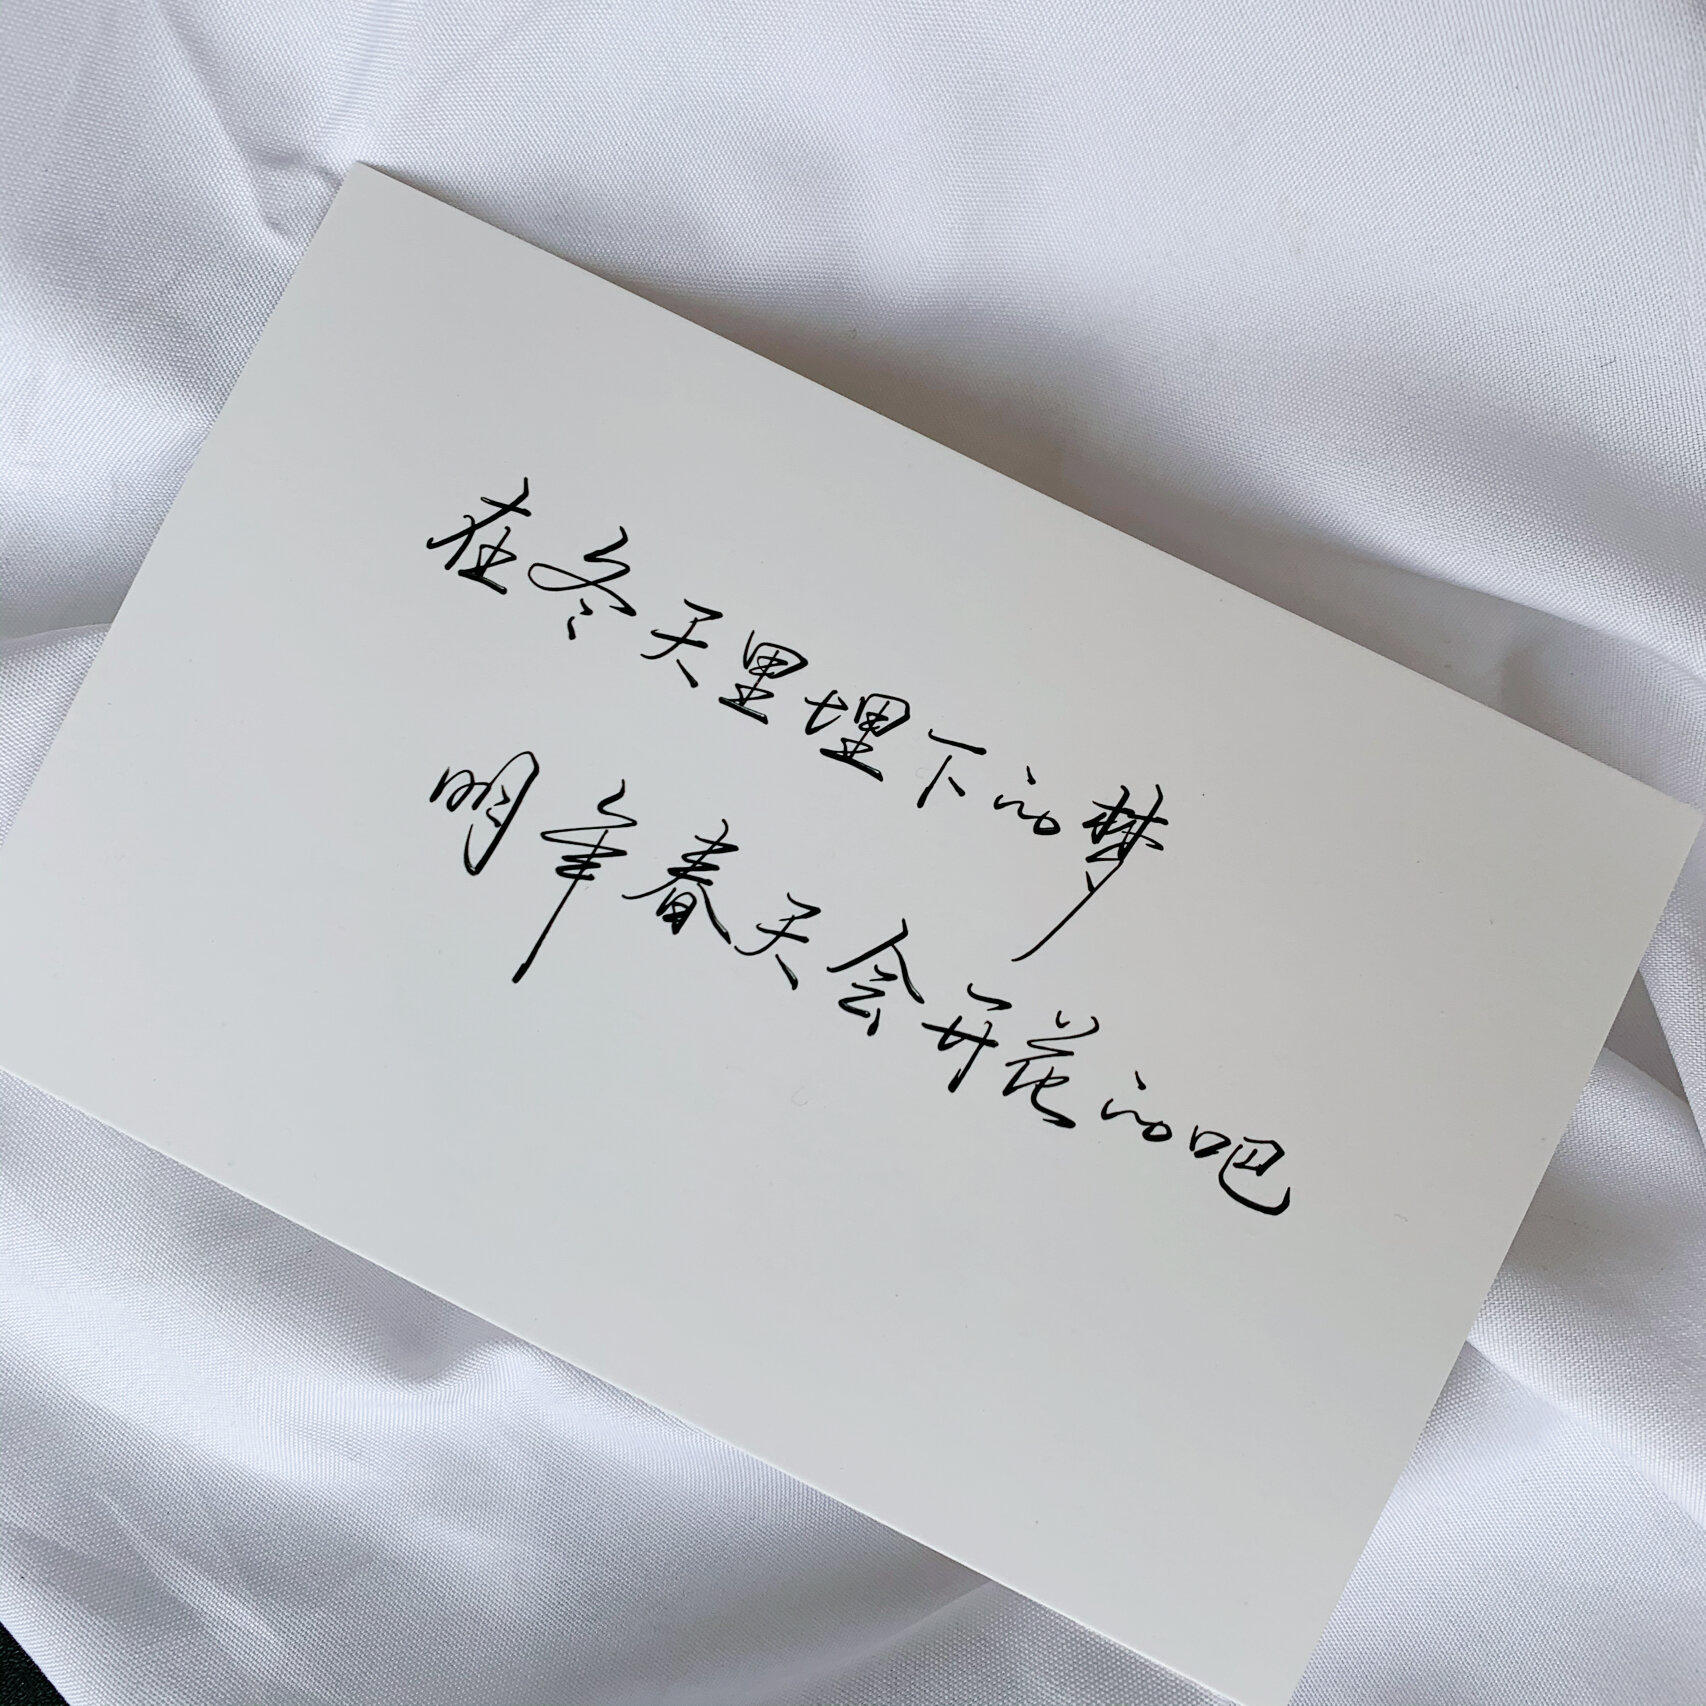 在冬天里埋下的梦
明年春天会开花的吧